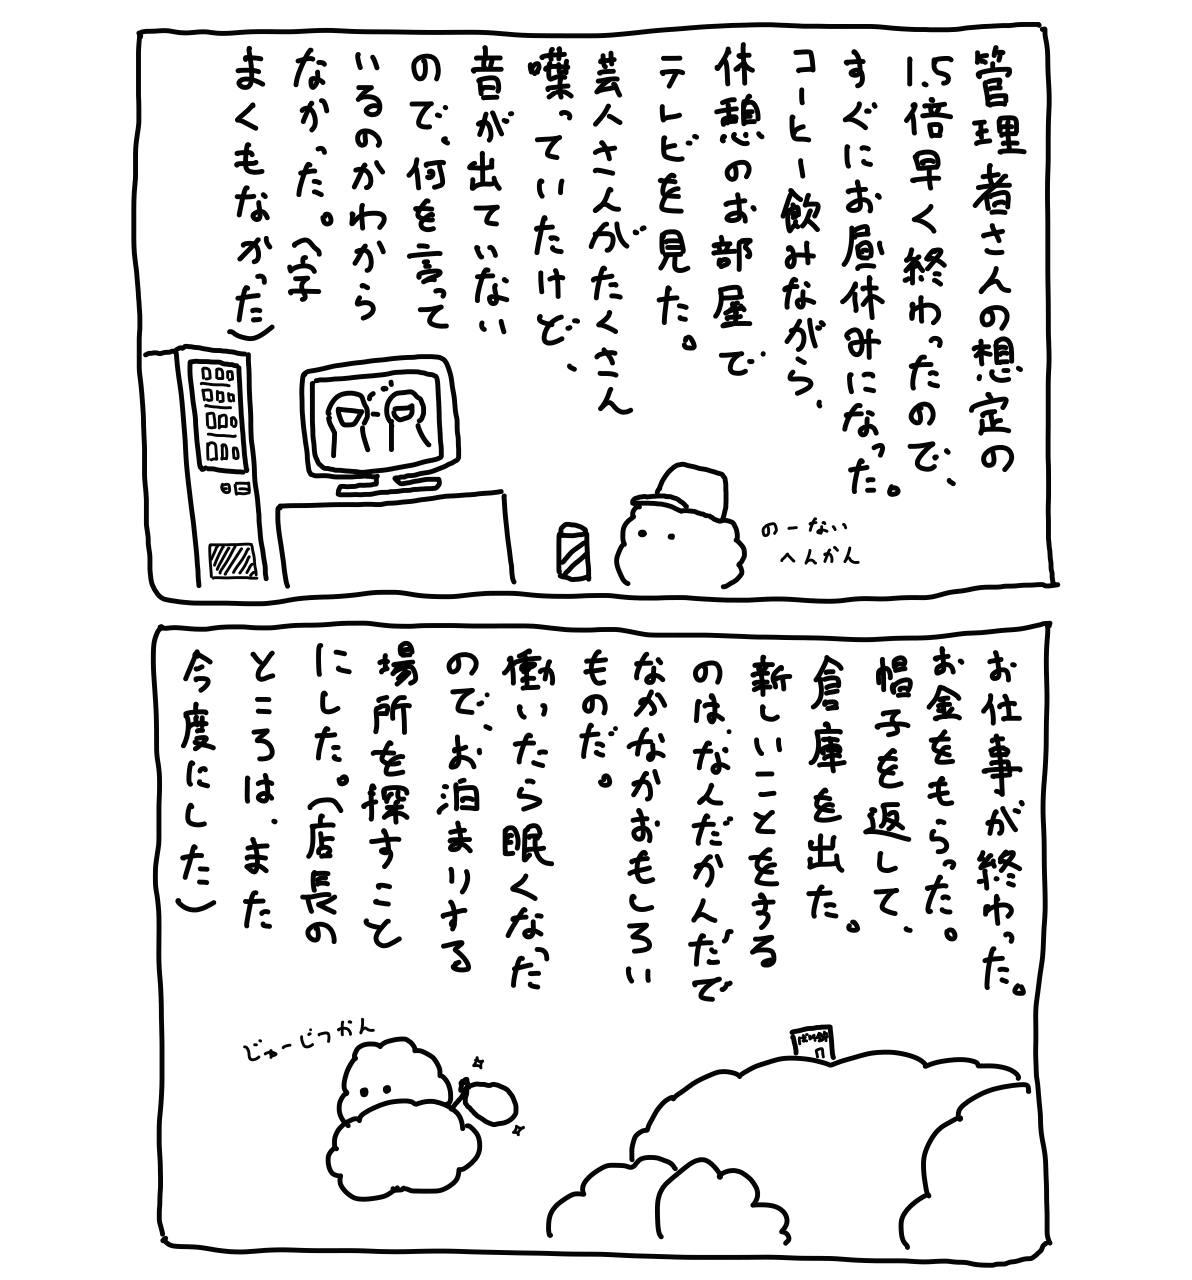 管理者さんの想定の
1.5倍早く終わったので、
すぐにお昼休みになった。
コーヒー飲みながら、
休憩のお部屋で
テレビを見た。
芸人さんがたくさん
喋っていたけど、
音が出ていない
ので、何を言って
いるのかわから
なかった。(字
まくもなかった)
のーない
へんかん
お仕事が終わった。
お金をもらった。
帽子を返して、
倉庫を出た。
新しいことをする
のは、なんだかんだで
なかなかおもしろい
ものだ。
働いたら眠くなった
ので、お泊まりする
場所を探すこと
にした。(店長の
ところは、また
今度にした)
じゅーじつかん